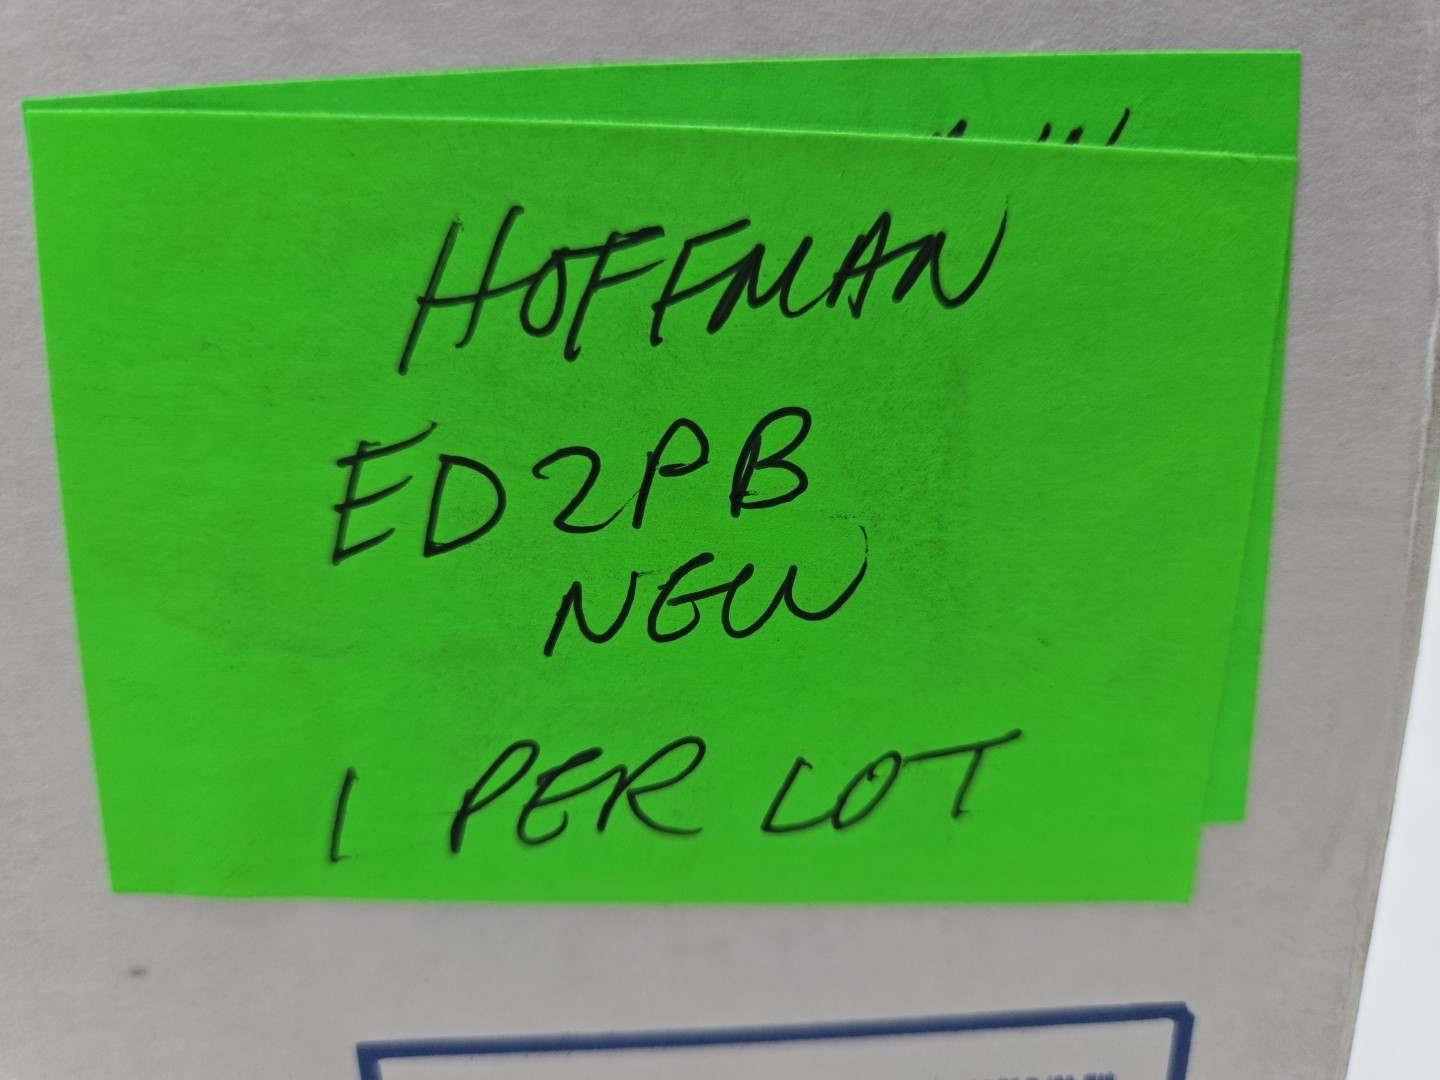 HOFFMAN
ED2PB
NEW
1 PER LOT